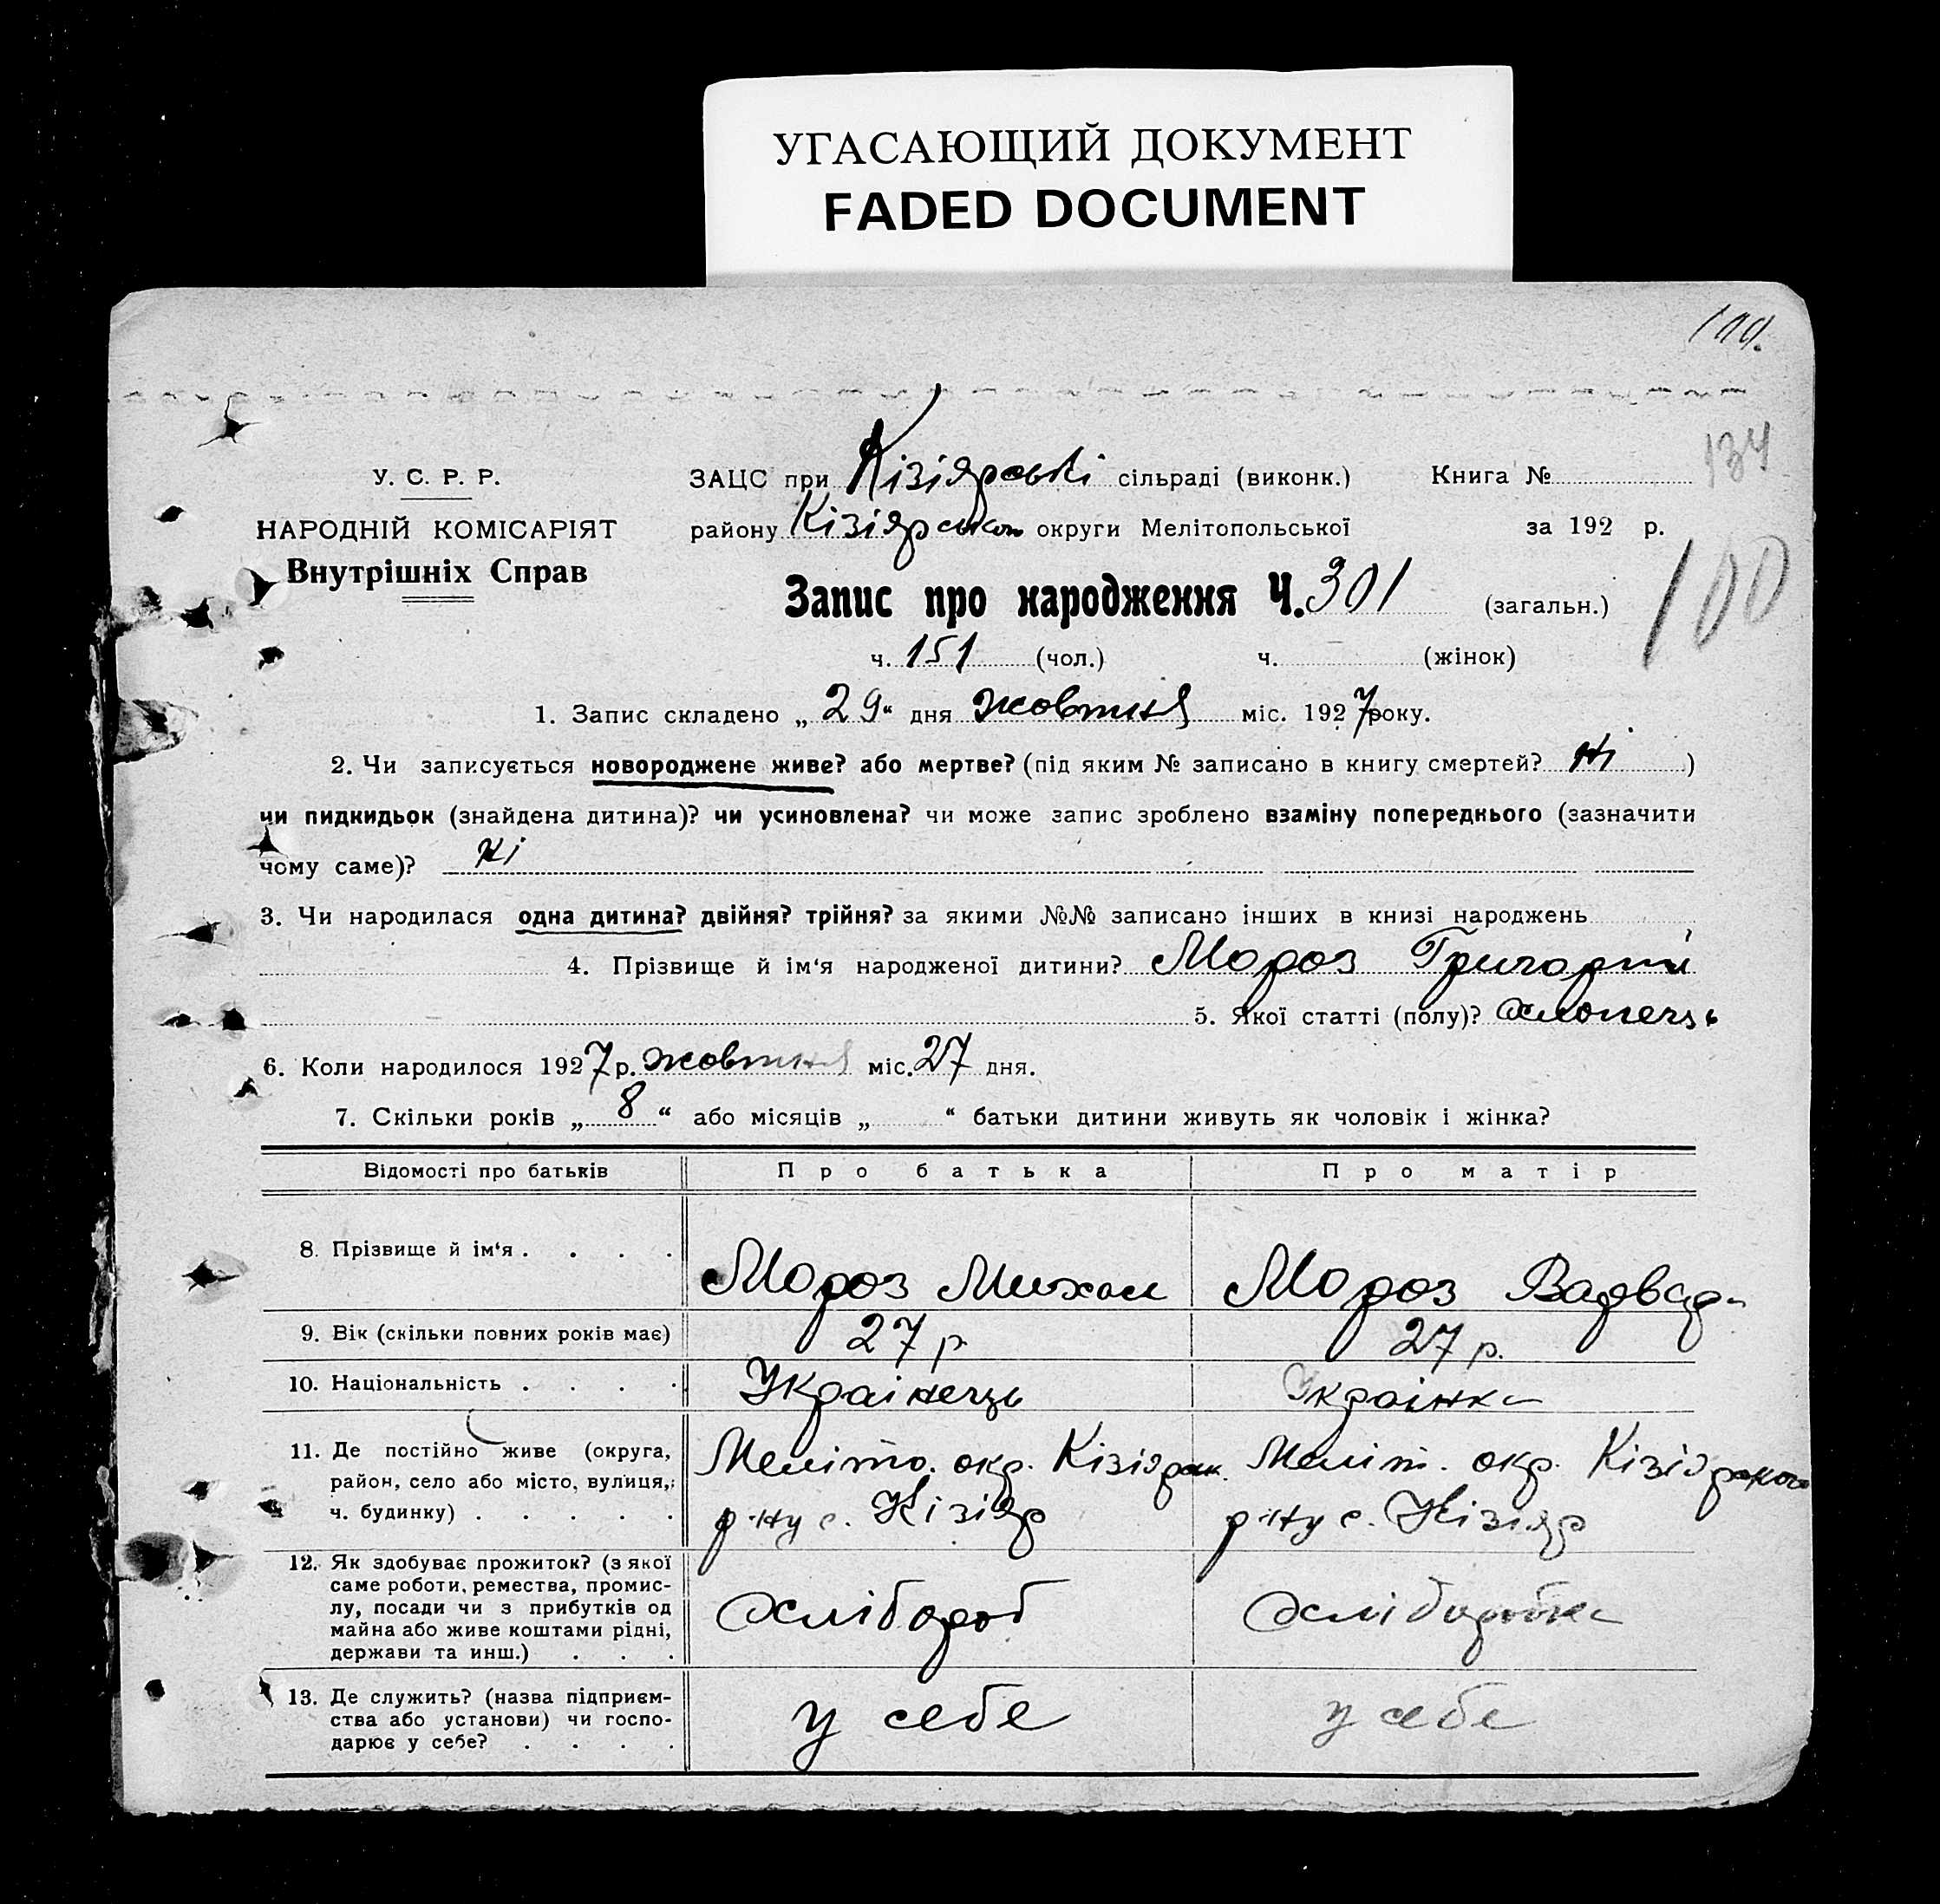 УГАСАЮЩИЙ ДОКУМЕНТ
FADED DOCUMENT
100.
134
У. С. Р. Р.
НАРОДНІЙ КОМІСАРІЯТ
Внутрішніх Справ
ЗАЦС при Кізіярські сільраді (виконк.) Книга №
району Кізіярськом округи Мелітопольської за 192 р.
Запис про народження Ч. 301 (загальн.)
100
ч. 151 (чол.) ч. (жінок)
1. Запис складено „ 29 “ дня жовтня міс. 1927 року.
2. Чи записується новороджене живе? або мертве? (під яким № записано в книгу смертей? ні )
чи пидкидьок (знайдена дитина)? чи усиновлена? чи може запис зроблено взаміну попереднього (зазначити
чому саме)? ні
3. Чи народилася одна дитина? двійня? трійня? за якими №№ записано інших в книзі народжень
4. Прізвище й ім‘я народженої дитини? Мороз Григорій
5. Якої статті (полу)? хлопець
6. Коли народилося 1927 р. жовтня міс. 27 дня.
7. Скільки років „ 8 “ або місяців „ “ батьки дитини живуть як чоловік і жінка?
Відомості про батьків Про батька Про матір
8. Прізвище й ім‘я . . . . Мороз Михаил Мороз
9. Вік (скільки повних років має) 27 р 27 р.
10. Національність . . . . Украінець Украінка
11. Де постійно живе (округа,
район, село або місто, вулиця,
ч. будинку) . . . . .
Меліто. окр. Кізіярск.
р-ну с. Кізіяр
Меліт. окр. Кізіярского
р-ну с. Кізіяр
12. Як здобуває прожиток? (з якої
саме роботи, ремества, промис-
лу, посади чи з прибутків од
майна або живе коштами рідні,
держави та инш.) . . .
хлібороб
хліборобка
13. Де служить? (назва підприєм-
ства або установи) чи госпо-
дарює у себе? . . . .
у себе
у себе